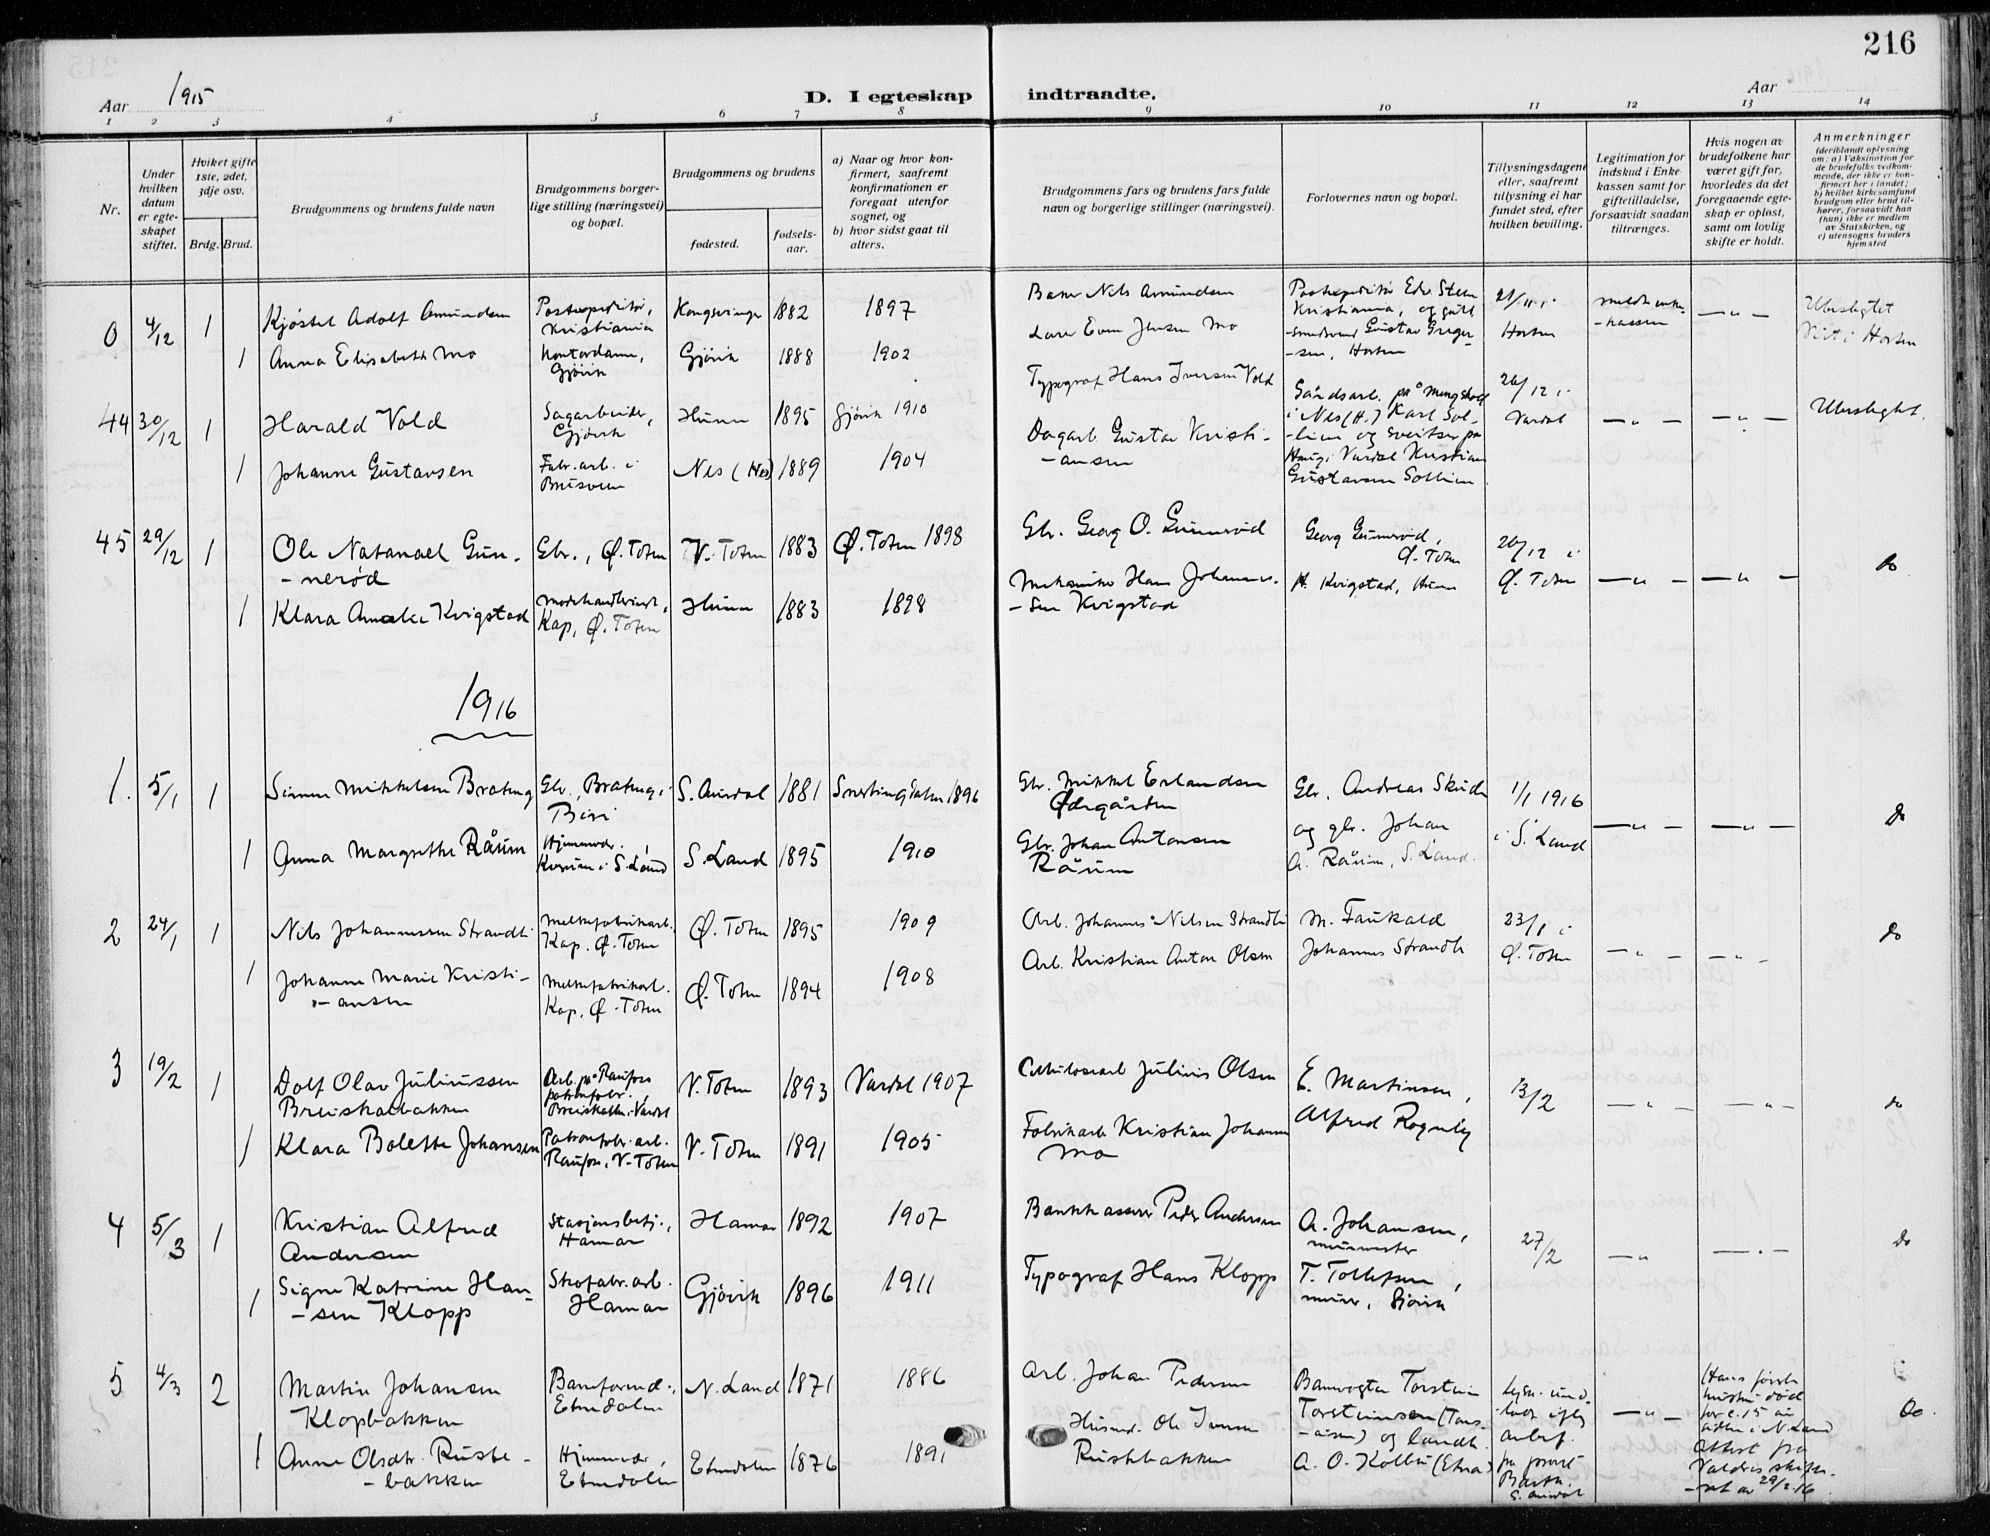 216
Aar 1915
D. I egteskap indtraadte.
Aar
1 2 3 4 5 6 7 8 9 10 11 12 13 14
Nr.
Under hvilken datum er egteskapet stiftet.
Hviket gifte 1ste, 2det, 3dje osv.
Brdg. Brud.
Brudgommens og brudens fulde navn
Brudgommens borgerlige stilling (næringsvei) og bopæl.
Brudgommens og brudens
fødested.
fødselsaar.
a) Naar og hvor konfirmert, saafremt konfirmationen er foregaat utenfor sognet, og
b) hvor sidst gaat til alters.
Brudgommens fars og brudens fars fulde navn og borgerlige stillinger (næringsvei).
Forlovernes navn og bopæl.
Tillysningsdagene eller, saafremt tillysning ei har fundet sted, efter hvilken bevilling.
Legitimation for indskud i Enkekassen samt for giftetilladelse, forsaavidt saadan tiltrænges.
Hvis nogen av brudefolkene har været gift før, hvorledes da det foregaaende egteskap er opløst, samt om lovlig skifte er holdt.
Anmerkninger (deriblandt oplysning om: a) Vaksination for de brudefolks vedkommende, der ikke er konfirmert her i landet; b) hvilket kirkesamfund brudgom eller brud tilhører, forsaavidt han (hun) ikke er medlem av Statskirken, og c) utensogns bruders hjemsted
0 4/12 1 Kjøstel Adolf Amundsen Postexpeditør, Kristiania Kongsvinger 1882 1897 Nils Amundsen Postexpeditør Edv. Steen Kristiania, og Gustav Greger-sen, Horten Horten Ubesligtet
1 Anna Elisabeth Mo Kontordame, Gjøvik Gjøvik 1888 1902 Even Jensen Mo Viet i Horten
44 30/12 1 Harald Vold Sagarbeider, Gjøvik Hunn 1895 Gjøvik 1910 Typograf Hans Iversen Vold Gårdsarb. på i Nes (H.) Karl Sol-lien og sveitser på Haug i Vardal Kristian Gustavsen Sollien 26/12 i Vardal — " — — " — Ubesligtet.
1 Johanne Gustavsen Fabr.arb. i Nes (Hed) 1889 1904 Dagarb. Gustav Kristi-ansen
45 29/12 1 Ole Natanael Gun-nerød Gbr., Ø. Toten V. Toten 1883 Ø. Toten 1898 Gbr. Georg O. Gunnerød Georg Gunnerød, Ø. Toten 26/12 i Ø. Toten — " — — " — do
1 Klara Amalie Kvigstad Modehandlerinde, Kap, Ø. Toten Hunn 1883 1898 Mekaniker Hans Johannes-sen Kvigstad H. Kvigstad, Hunn
1916
1. 5/1 1 Simen Mikkelsen Brateng Gbr., Brateng i Biri S. Aurdal 1881 Snertingdalen 1896 Gbr. Mikkel Erlandsen Ødegården Gbr. Andreas Skinde og gbr. Johan A. Råum, S. Land. 1/1 1916 i S. Land — " — — " — do
1 Anna Margrethe Råum Hjemmev. i S. Land S. Land 1895 1910 Gbr. Johan Antonsen Råum
2 24/1 1 Nils Johannessen Strandli Melkefabrikarb. Kap. Ø. Toten Ø. Toten 1895 1909 Arb. Johannes Nilsen Strandli M. Faukald Johannes Strandli 23/1 i Ø. Toten — " — — " — do
1 Johanne Marie Kristi-ansen Melkefabrikarb. Kap, Ø. Toten Ø. Toten 1894 1908 Arb. Kristian Anton Olsen
3 19/2 1 Dolf Olav Juliussen Breiskalbakken Arb. på Raufoss patronfabr., Breiskallen i Vardal V. Toten 1893 Vardal 1907 Cellulosearb Julius Olsen E. Martinsen, Alfred Rognely 13/2 — " — — " — do
1 Klara Bolette Johansen Patronfabr.arb. Raufoss, V. Toten V. Toten 1891 1905 Fabrikarb. Kristian Johansen Mo
4 5/3 1 Kristian Alfred Andersen Stasjonsbetj., Hamar Hamar 1892 1907 Bankkasserer Peder Andersen A. Johansen, murmester T. Tollefsen, murer, Gjøvik 27/2 — " — — " — do
1 Signe Katrine Han-sen Klopp Skofabr.arb. Hamar Gjøvik 1896 1911 Typograf Hans Klopp
5 4/3 2 Martin Johansen Klopbakken Baneformd., Etnedalen N. Land 1871 1886 Arb. Johan Pedersen Banevogter Torstein Torsteinsen og landh. A. O. Kolbu (Etna) Lysn. und-latt efter anbef. fra provst Barth. S. Aurdal — " — Hans første hustru død for c. 15 år siden i N. Land Attest fra Valdres skifte-ret av 29/2 16 do.
1 Anne Olsdtr. Ruste-bakken Hjemmev., Etnedalen Etnedalen 1876 1891 Husmd. Ole Iversen Rustebakken